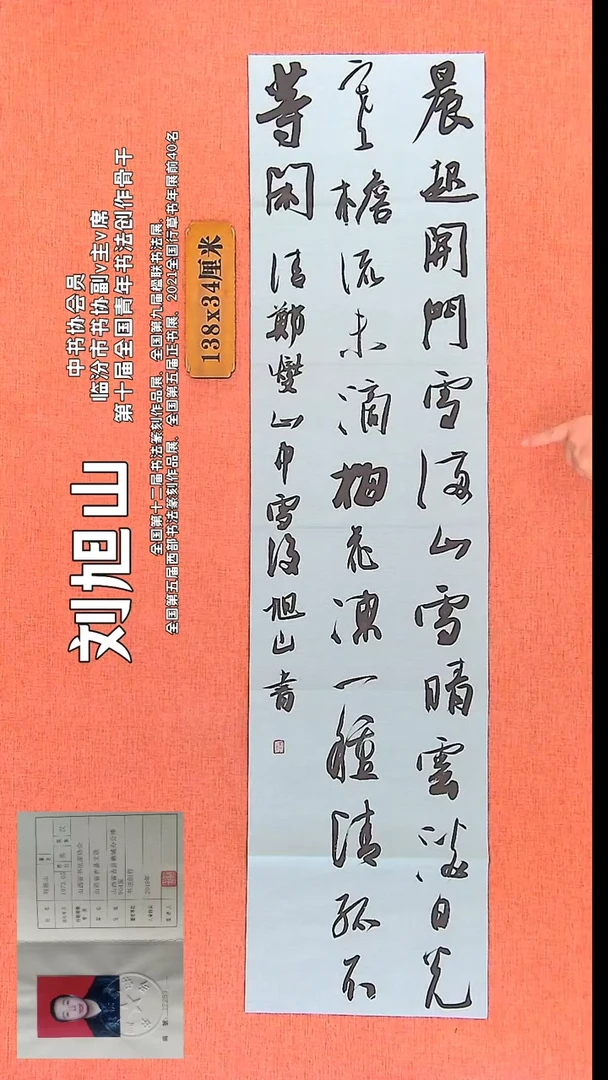 刘旭山
中书协会员
临汾市书协副v主v席
第十届全国青年书法创作骨干
全国第十二届书法篆刻作品展、全国第九届楹联书法展、
全国第五届西部书法篆刻作品展、全国第五届正书展、2021全国行草书年展前40名
138x34厘米
晨起開門雪滿山雪晴雲淡日光
寒檐流未滴梅花凍一種清孤不
等閑 清鄭燮山中雪後旭山書